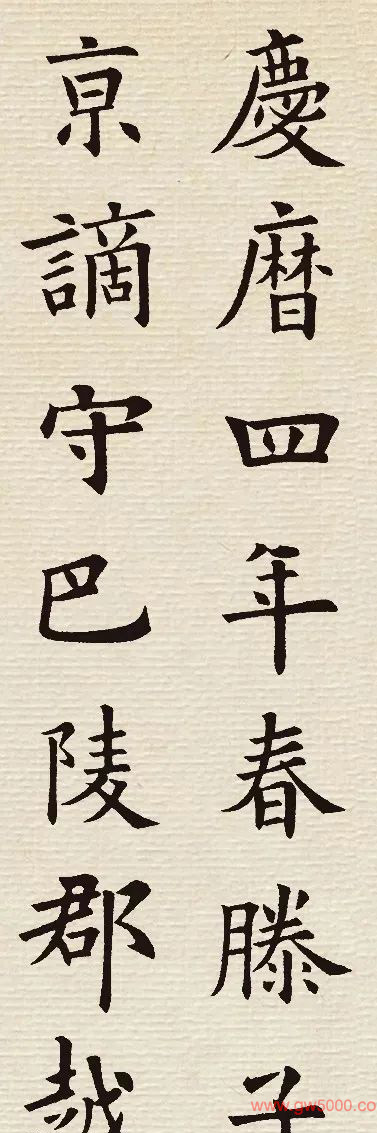 慶曆四年春滕子
亰謫守巴陵郡越
www.gw5000.co